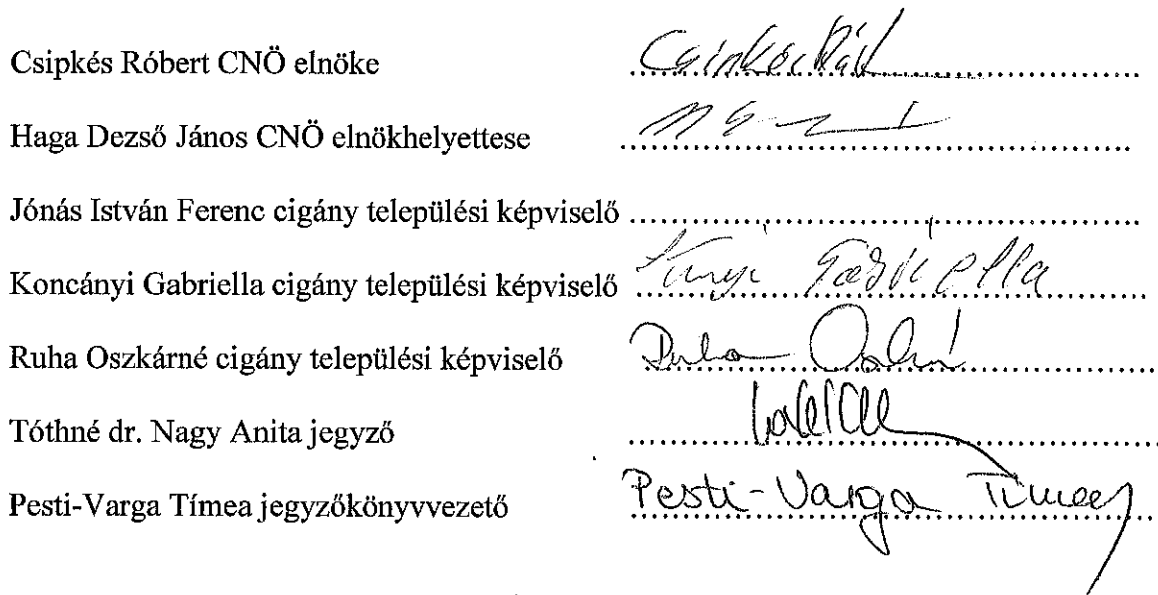 Csipkés Róbert CNÖ elnöke
Haga Dezső János CNÖ elnökhelyettese
Jónás István Ferenc cigány települési képviselő ..............................
Koncányi Gabriella cigány települési képviselő Gabriella
Ruha Oszkárné cigány települési képviselő Ruha
Tóthné dr. Nagy Anita jegyző
Pesti-Varga Tímea jegyzőkönyvvezető Pesti-Varga Tímea